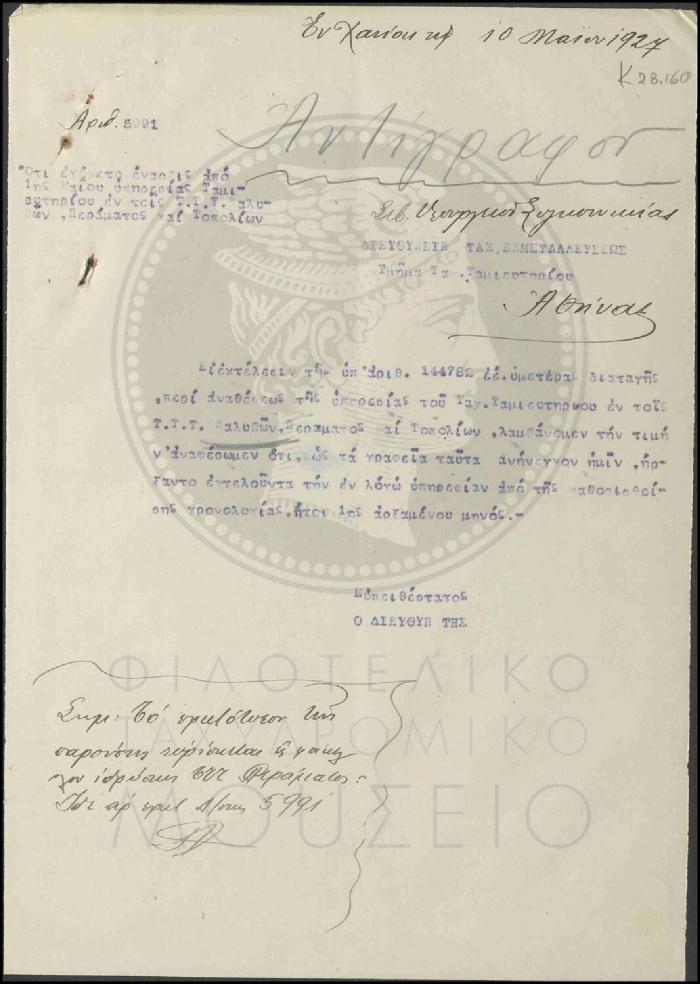 Ἐν Χανίοις τῇ 10 Μαΐου 1927
Κ 28.160
Ἀριθ. 5991
Ἀντίγραφον
Ὅτι ἐγένετο ἔναρξις ἀπό
1ης Μαΐου ὑπηρεσίας Ταμι-
ευτηρίου ἐν τοῖς Τ.Τ.Τ. Καλυ-
βῶν ,Περάματος καί Τοπολίων
Σεβ. Ὑπουργεῖον Συγκοινωνίας
ΔΙΕΥΘΥΝΣΙΝ ΤΑΧ.ΕΚΜΕΤΑΛΛΕΥΣΕΩΣ
Τμῆμα Ταχ.Ταμιευτηρίου
Ἀθήνας
Εἰς ἐκτέλεσιν τῆς ὑπ'ἀριθ. 144782 ἐ.ἔ. ὑμετέρας διαταγῆς
,περί ἀναθέσεως τῆς ὑπηρεσίας τοῦ Ταχ.Ταμιευτηρίου ἐν τοῖς
Τ.Τ.Τ. Καλυβῶν,Περάματος καί Τοπολίων ,λαμβάνομεν τήν τιμή
ν'ἀναφέρωμεν ὅτι, ὡς τά γραφεῖα ταῦτα ἀνήνεγκον ἡμῖν ,ἤρ-
ξαντο ἐκτελοῦντα τήν ἐν λόγω ὑπηρεσίαν ἀπό τῆς καθορισθεί-
σης χρονολογίας,ἤτοι 1ης ἀρξαμένου μηνός.-
Εὐπειθέστατος
Ο ΔΙΕΥΘΥΝ ΤΗΣ
Σημ: Τό πρωτότυπον τῆς
παρούσης εὑρίσκεται ἐν φακέλ
λῳ ἱδρύσεως ΤΤΤ Περάματος:
5991
ΦΙΛΟΤΕΛΙΚΟ
ΤΑΧΥΔΡΟΜΙΚΟ
ΜΟΥΣΕΙΟ